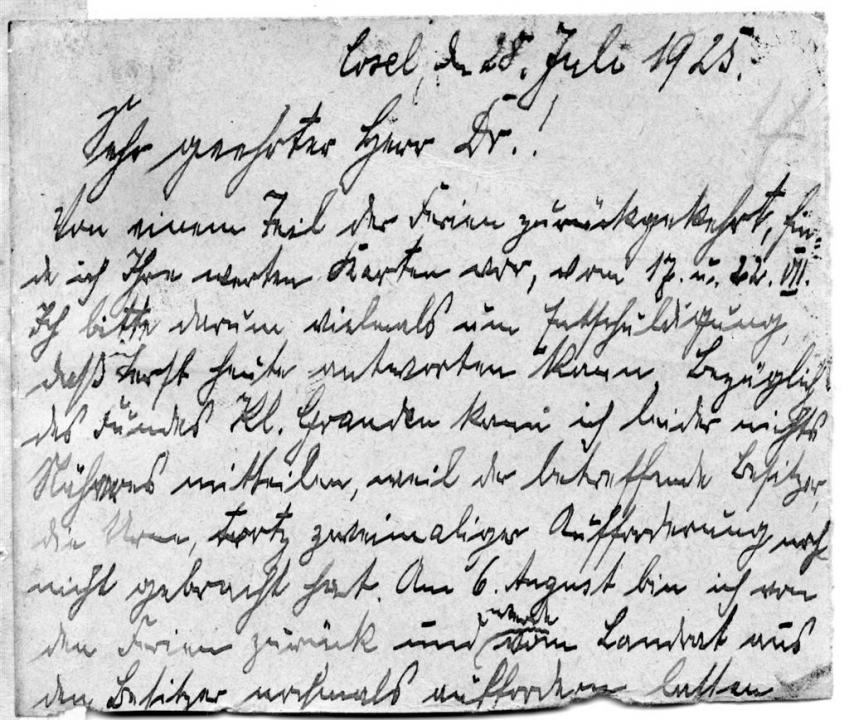 Cosel, d. 28. Juli 1925.
Sehr geehrter Herr Dr.!
Von einem Teil der Ferien zurückgekehrt, fin-
de ich Ihre werten Karten vor, vom 17. u. 22. VII.
Ich bitte darum vielmals um Entschuldigung,
daß erst heute antworten kann. Bezüglich
des Fundes Kl. Grauden kann ich leider nichts
Näheres mitteilen, weil der betreffende Besitzer,
die Urne, trotz zweimaliger Aufforderung noch
nicht gebracht hat. Am 6. August bin ich von
den Ferien zurück und werde vom Landrat aus
den Besitzer nochmals auffordern lassen